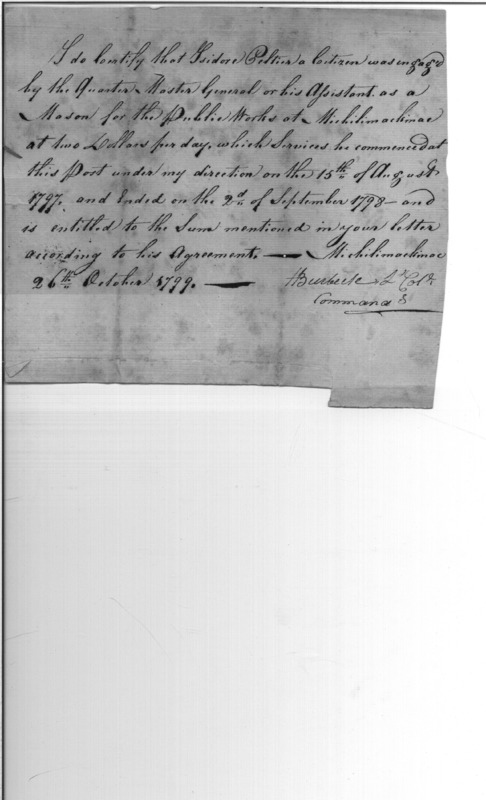 I do Certify that Isidore Peltier a Citizen was engag'd
by the Quarter Master General or his Assistant as a
Mason for the Public Works at Michilimackinac
at two Dollars per day, which Services he commenced at
this Post under my direction on the 15th of August
1797, and Ended on the 2d of September 1798 - and
is entitled to the Sum mentioned in your letter
according to his Agreement. — Michilimackinac
26th October 1799. —
HBurbeck Lt Coll
Command S